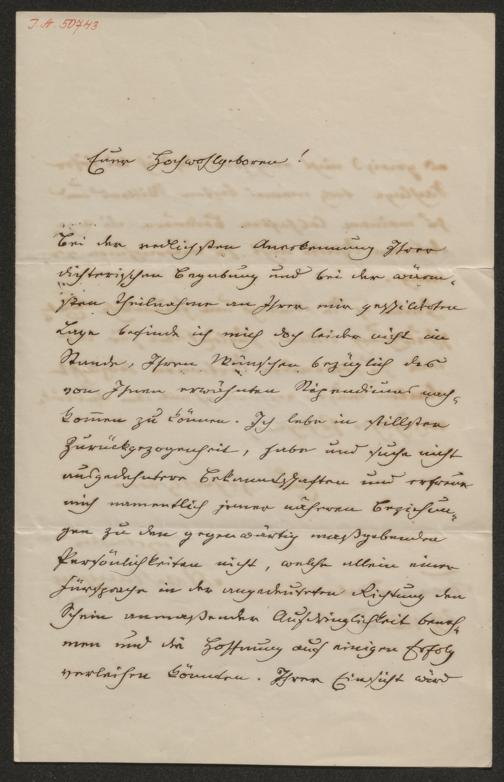 J. N. 50743
Euer Hochwohlgeboren!
Bei der redlichsten Anerkennung Ihrer
dichterischen Begabung und bei der wärm-
sten Theilnahme an Ihrer mir geschilderten
Lage befinde ich mich doch leider nicht im
Stande, Ihren Wünschen bezüglich des
von Ihnen erwähnten Stipendiums nach-
kommen zu können. Ich lebe in stillster
Zurückgezogenheit, habe und suche nicht
ausgedehntere Bekanntschaften und erfreue
mich namentlich jener näheren Beziehun-
gen zu den gegenwärtig maßgebenden
Persönlichkeiten nicht, welche allein einer
Fürsprache in der angedeuteten Richtung den
Schein anmaßender Aufdringlichkeit beneh-
men und die Hoffnung auf einigen Erfolg
verleihen könnten. Ihrer Einsicht wird